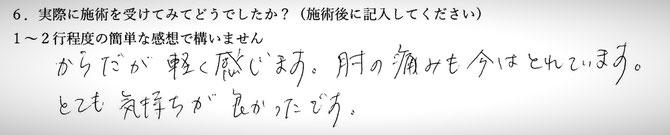 6．実際に施術を受けてみてどうでしたか？（施術後に記入してください）
1～2行程度の簡単な感想で構いません
からだが軽く感じます。肘の痛みも今はとれています。
とても気持ちが良かったです。